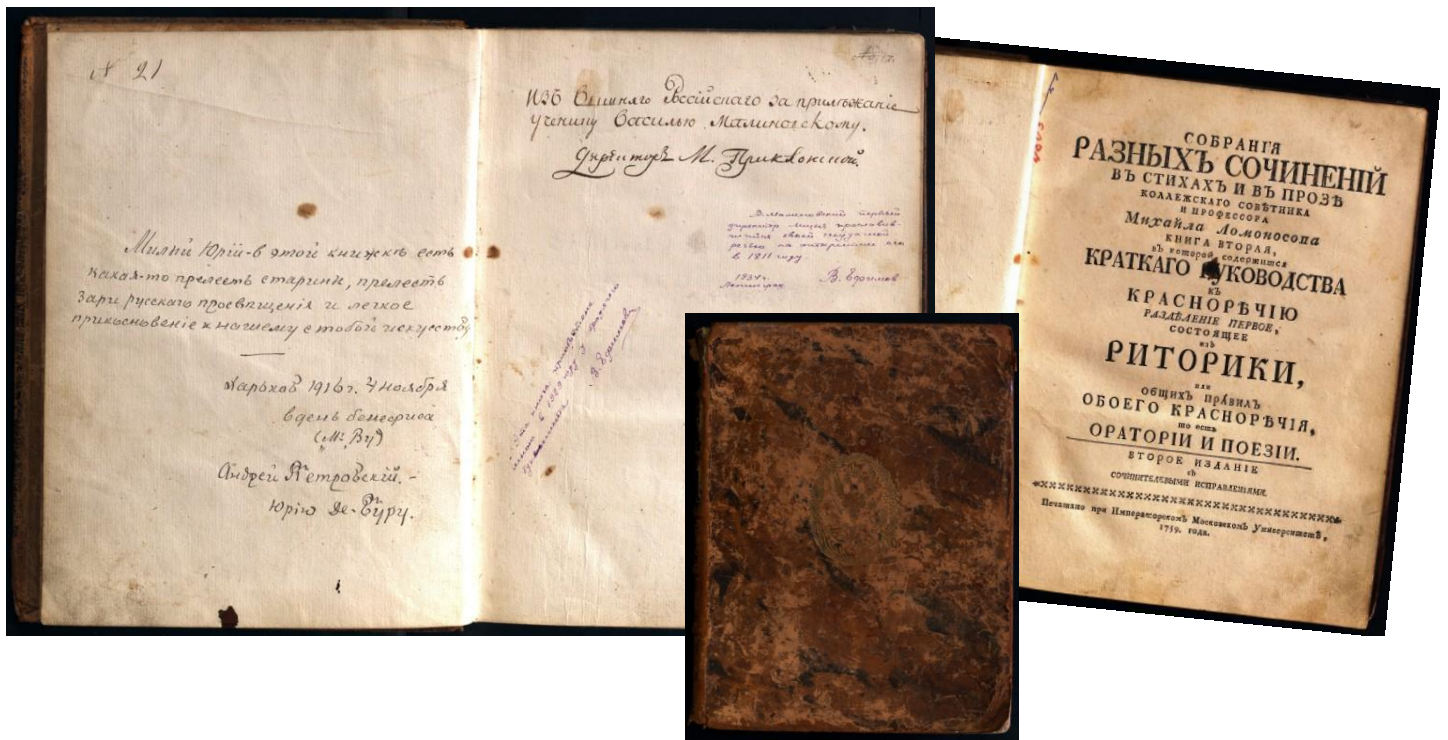 N 21
Милый Юрій - в этой книжкѣ есть
какая-то прелесть старины, прелесть
зари русскаго просвѣщенія и легкое
прикосновеніе к нашему с тобой искусству
Харьков 1916 г. 4 ноября
в день бенефиса
(Mr Ву)
Андрей Петровскій. -
Юрію Де-Буру.
изъ Вышняго Россійскаго за прилѣжаніе
ученику Василью Малиновскому.
Директоръ М. Приклонской.
В. Малиновский первый
директор лицея
речью на открытии его
в 1811 году
1934 г.
Ленинград В. Ефимов
Эта книга
в году
В. Ефимов
СОБРАНІЯ
РАЗНЫХЪ СОЧИНЕНІЙ
ВЪ СТИХАХЪ И ВЪ ПРОЗѢ
КОЛЛЕЖСКАГО СОВѢТНИКА
И ПРОФЕССОРА
Михайла Ломоносова
КНИГА ВТОРАЯ,
въ которой содержится
КРАТКАГО РУКОВОДСТВА
КЪ
КРАСНОРѢЧІЮ
РАЗДѢЛЕНІЕ ПЕРВОЕ,
СОСТОЯЩЕЕ
изъ
РИТОРИКИ,
или
ОБЩИХЪ ПРАВИЛЪ
ОБОЕГО КРАСНОРѢЧІЯ,
то есть
ОРАТОРІИ И ПОЕЗІИ.
ВТОРОЕ ИЗДАНІЕ
съ
СОЧИНИТЕЛЕВЫМИ ИСПРАВЛЕНІЯМИ.
Печатано при Императорскомъ Московскомъ Университетѣ,
1759. года.